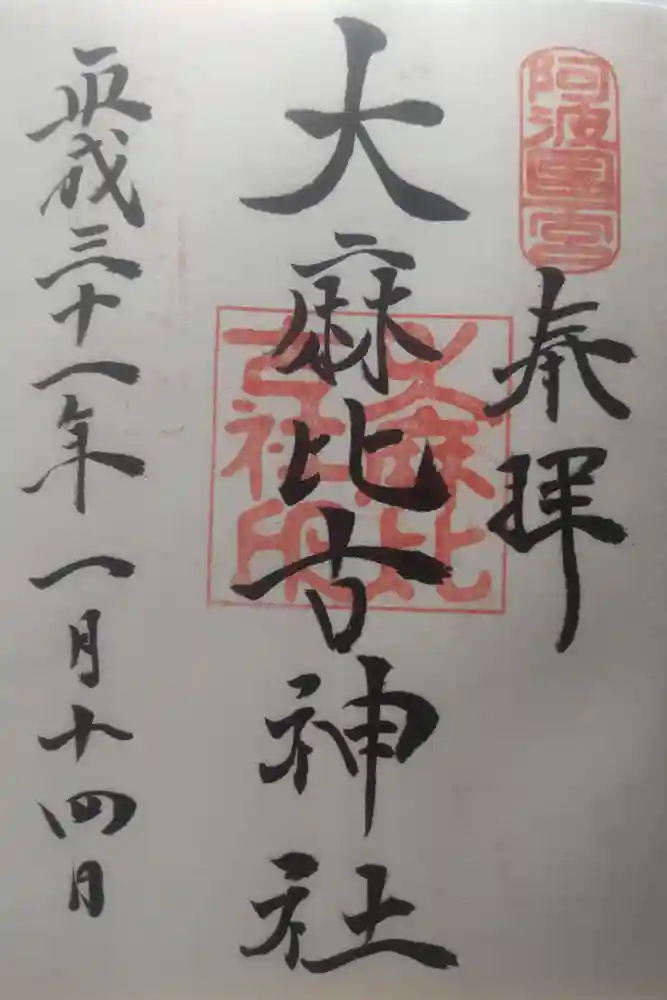 阿波国一宮
奉拝
大麻比古神社
大麻比
古社印
平成三十一年一月十四日